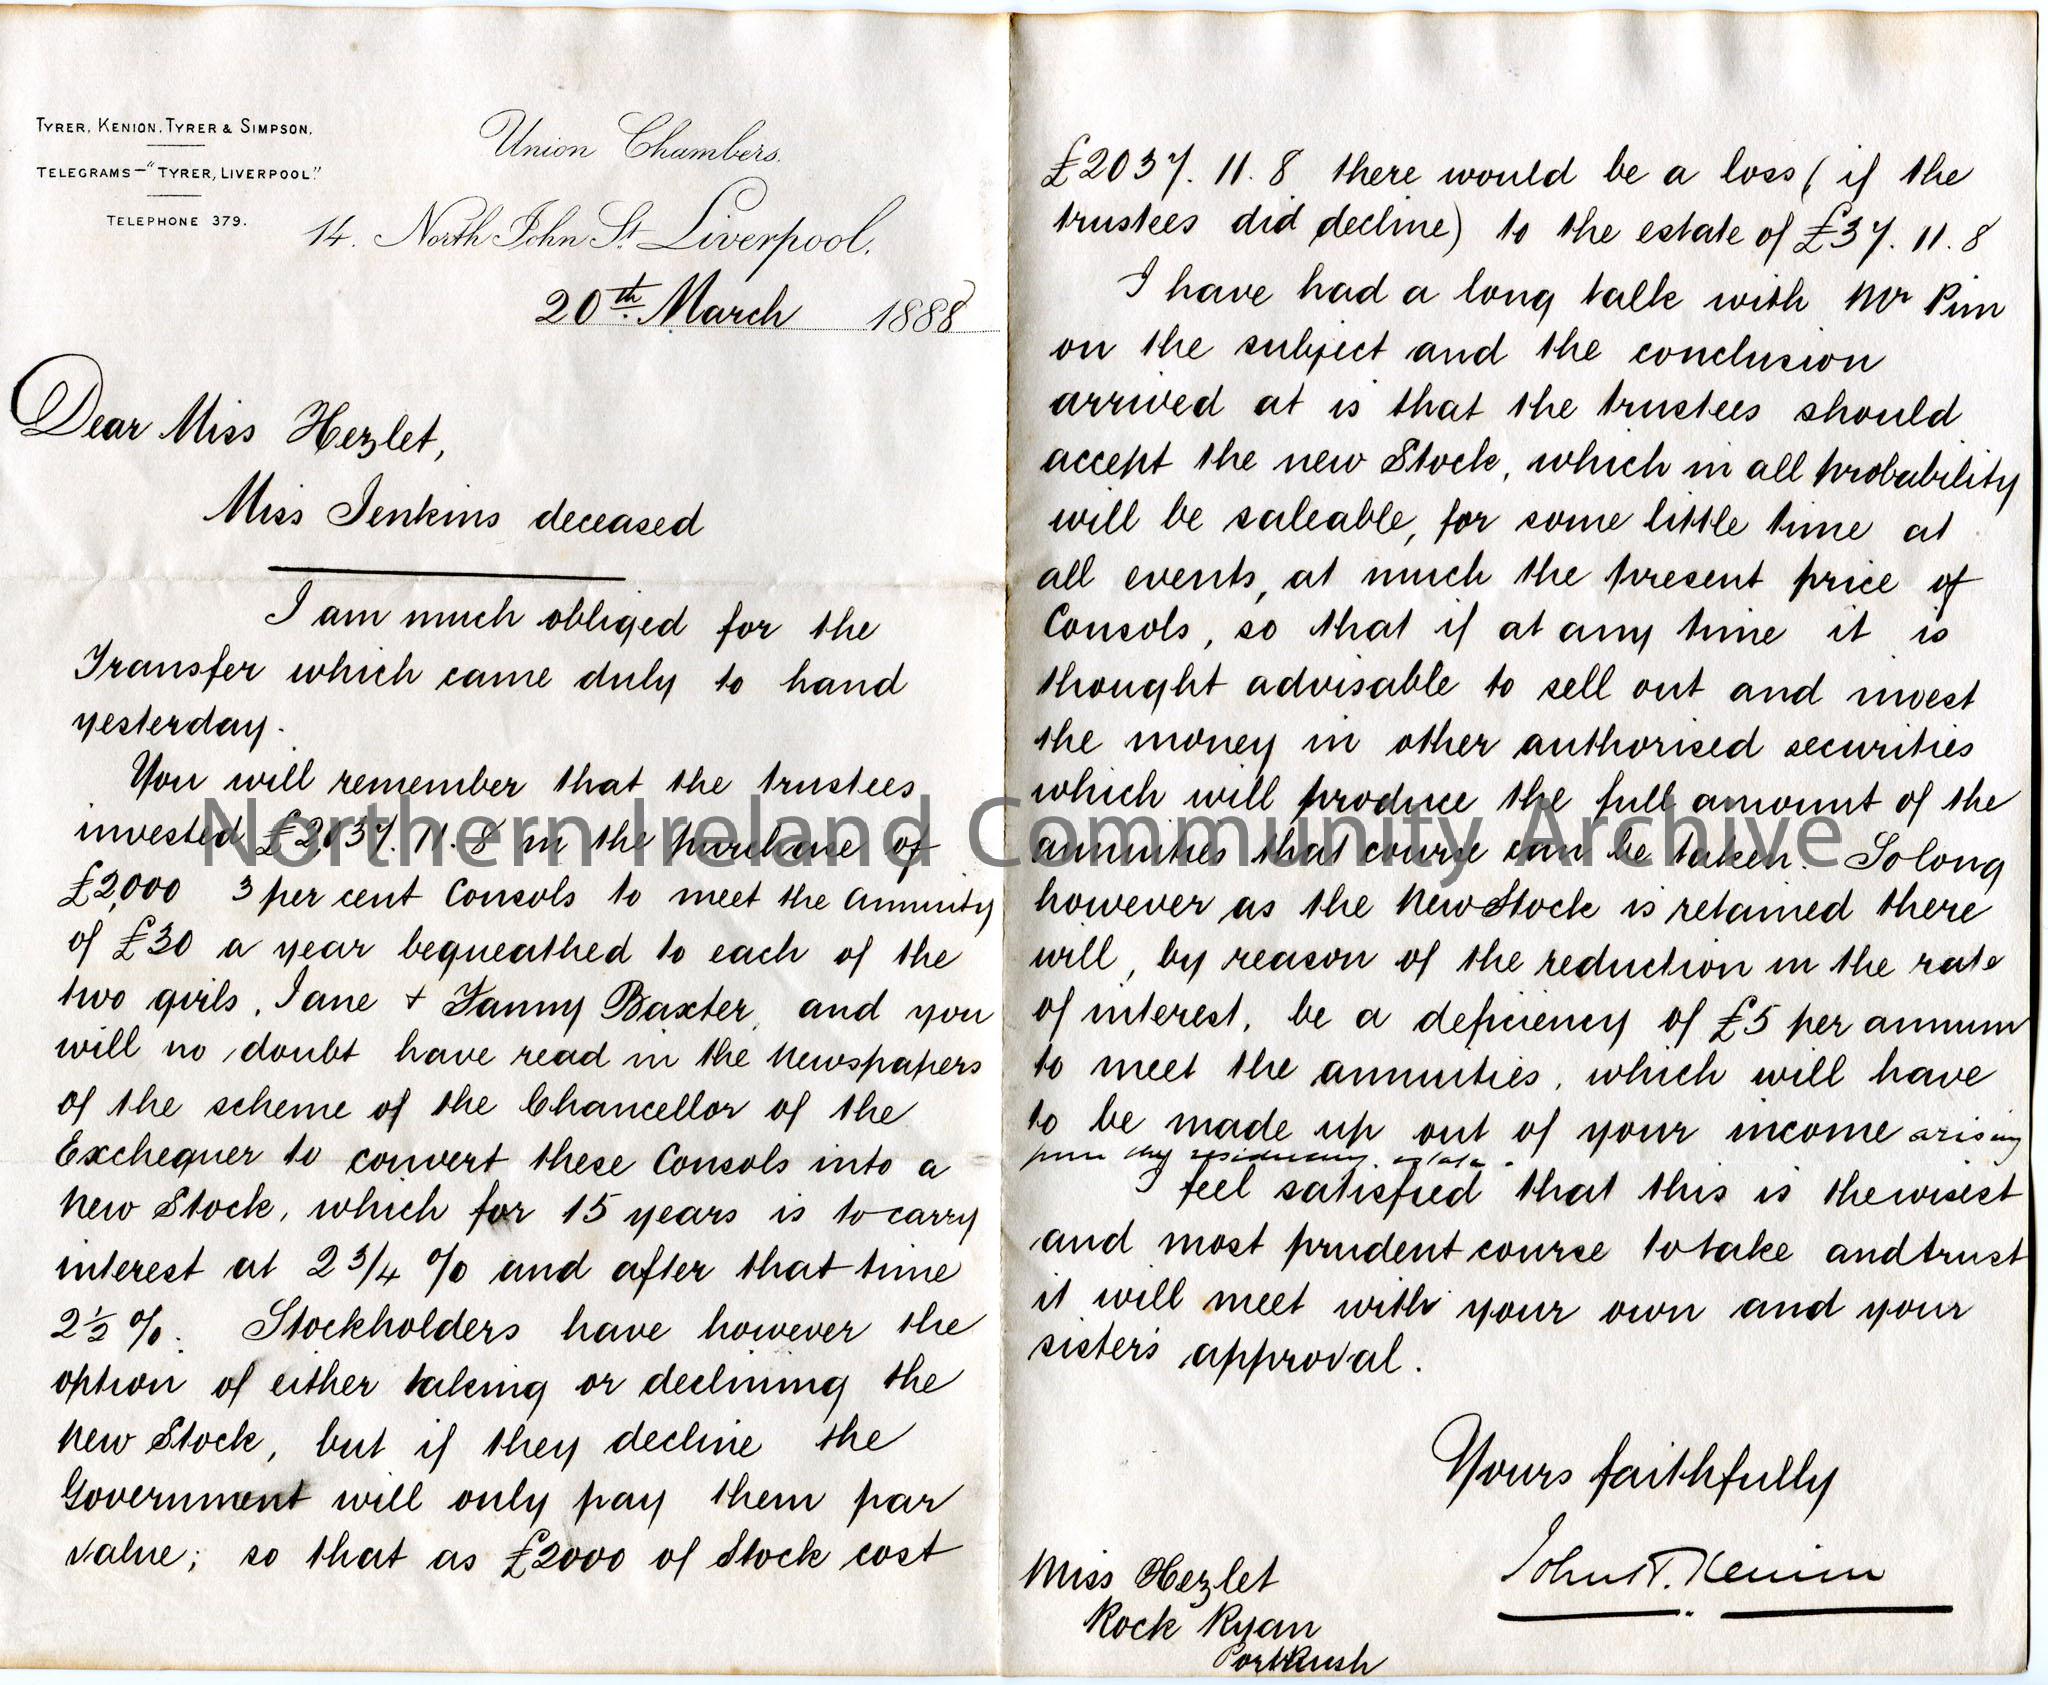 TYRER, KENION, TYRER & SIMPSON.
TELEGRAMS—"TYRER, LIVERPOOL."
TELEPHONE 379.
Union Chambers.
14. North John St. Liverpool.
20th March 1888
Dear Miss Hezlet,
Miss Jenkins deceased
I am much obliged for the
Transfer which came duly to hand
yesterday.
You will remember that the trustees
invested £2,037. 11. 8 in the purchase of
£2,000 3 per cent Consols to meet the annuity
of £30 a year bequeathed to each of the
two girls, Jane + Fanny Baxter, and you
will no doubt have read in the newspapers
of the scheme of the Chancellor of the
Exchequer to convert these Consols into a
New Stock, which for 15 years is to carry
interest at 2 3/4 % and after that time
2½ %. Stockholders have however the
option of either taking or declining the
New Stock, but if they decline the
Government will only pay them par
value; so that as £2000 of Stock cost
£2037. 11. 8 there would be a loss (if the
trustees did decline) to the estate of £37. 11. 8
I have had a long talk with Mr Pim
on the subject and the conclusion
arrived at is that the trustees should
accept the new Stock, which in all probability
will be saleable, for some little time at
all events, at much the present price of
Consols, so that if at any time it is
thought advisable to sell out and invest
the money in other authorised securities
which will produce the full amount of the
annuities that course can be taken. So long
however as the New Stock is retained there
will, by reason of the reduction in the rate
of interest, be a deficiency of £5 per annum
to meet the annuities, which will have
to be made up out of your income arising
from the residuary estate.
I feel satisfied that this is the wisest
and most prudent course to take and trust
it will meet with your own and your
sister's approval.
Yours faithfully
John T. Kenion
Miss Hezlet
Rock Ryan
PortRush
Northern Ireland Community Archive